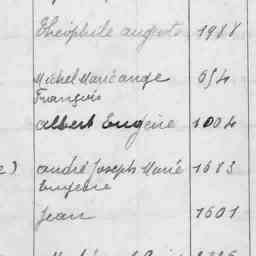 Théophile auguste 1988
Michel Marie ange 654
François
albert Eugène 1004
e) andré Joseph Marie 1683
Eugène
Jean 1601